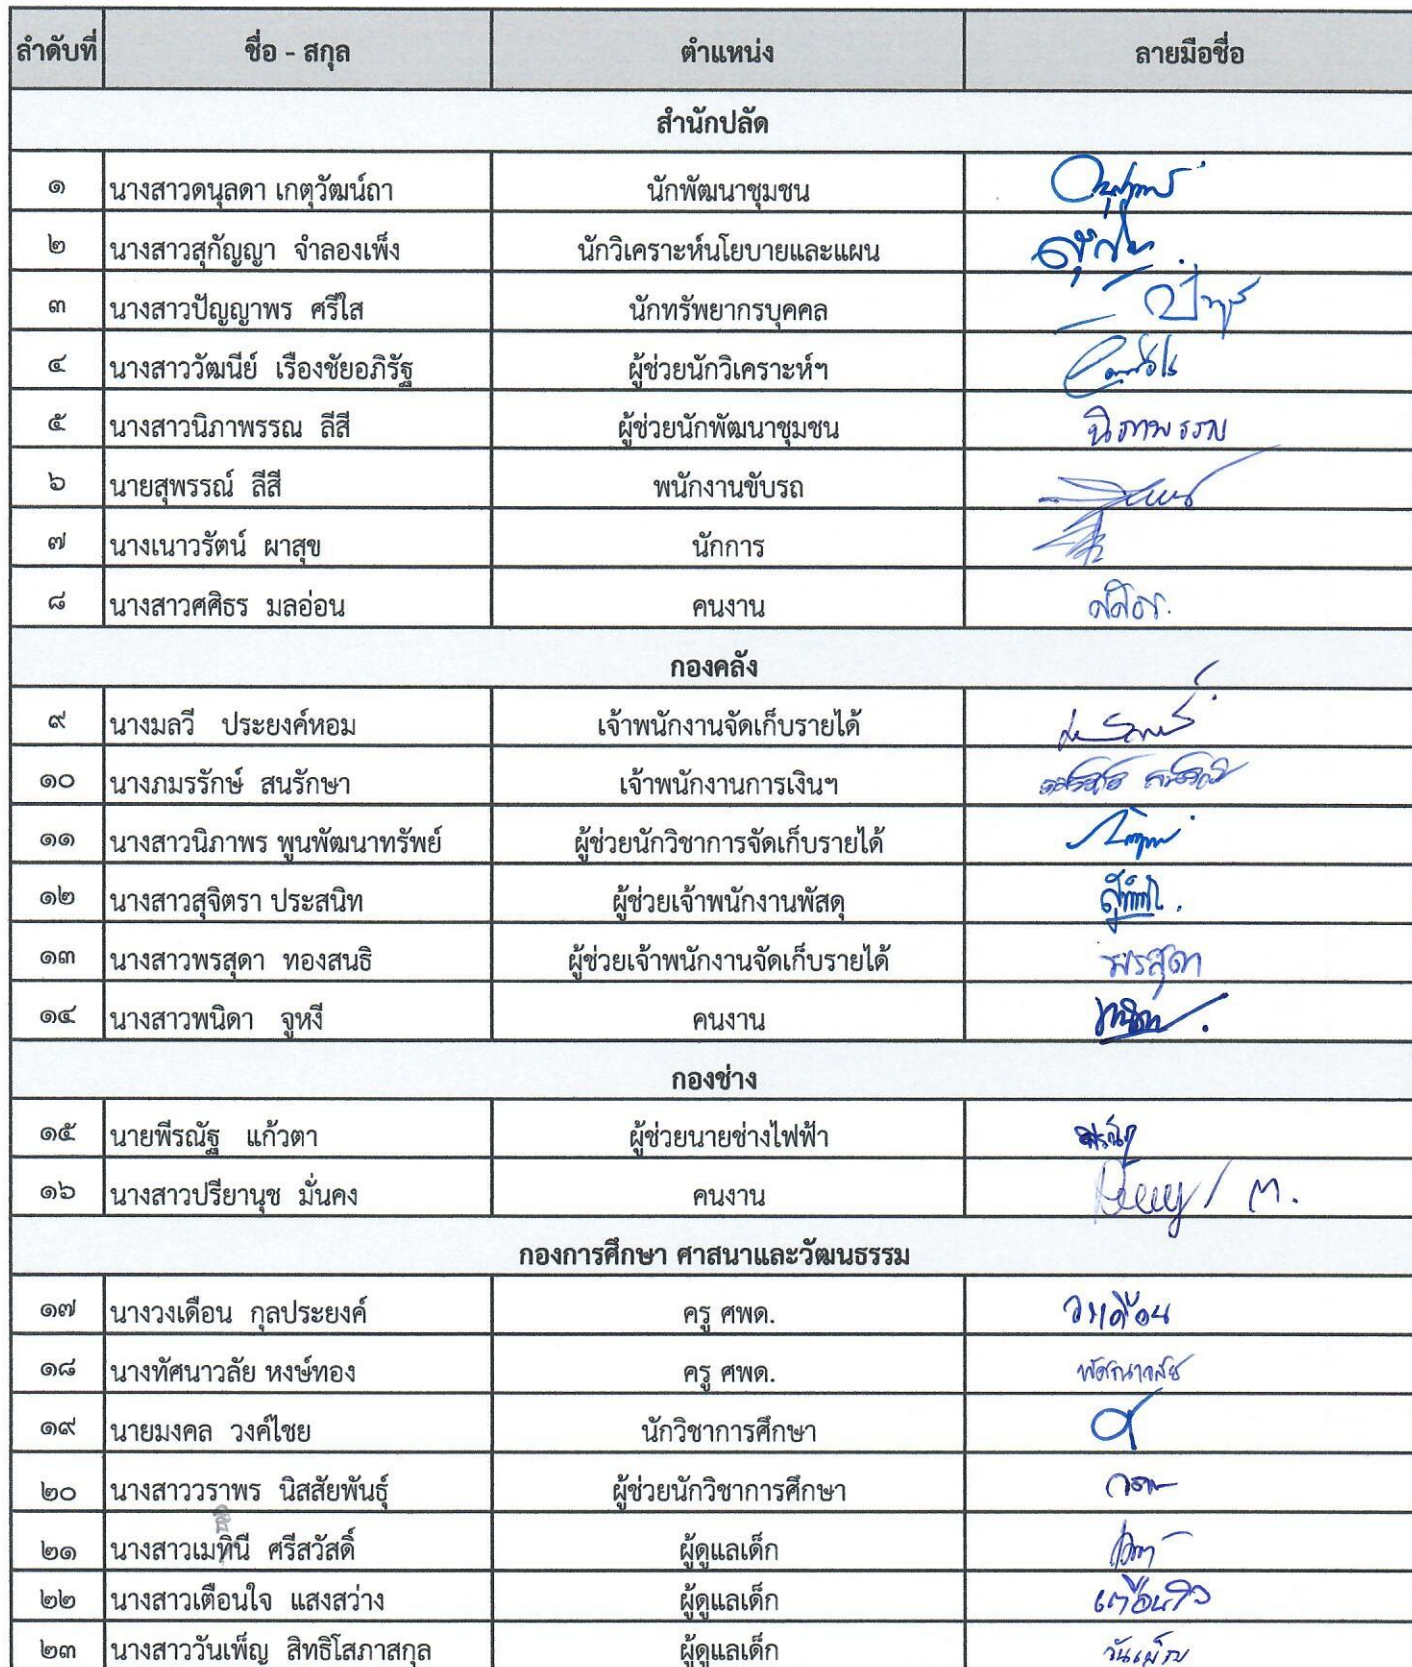 ลำดับที่ ชื่อ - สกุล ตำแหน่ง ลายมือชื่อ
สำนักปลัด
๑ นางสาวดนุลดา เกตุวัฒน์ถา นักพัฒนาชุมชน
๒ นางสาวสุกัญญา จำลองเพ็ง นักวิเคราะห์นโยบายและแผน
๓ นางสาวปัญญาพร ศรีใส นักทรัพยากรบุคคล
๔ นางสาววัฒนีย์ เรืองชัยอภิรัฐ ผู้ช่วยนักวิเคราะห์ฯ
๕ นางสาวนิภาพรรณ ลีสี ผู้ช่วยนักพัฒนาชุมชน นิภาพรรณ
๖ นายสุพรรณ์ ลีสี พนักงานขับรถ
๗ นางเนาวรัตน์ ผาสุข นักการ
๘ นางสาวศศิธร มลอ่อน คนงาน ศศิธร.
กองคลัง
๙ นางมลวี ประยงค์หอม เจ้าพนักงานจัดเก็บรายได้
๑๐ นางภมรรักษ์ สนรักษา เจ้าพนักงานการเงินฯ
๑๑ นางสาวนิภาพร พูนพัฒนาทรัพย์ ผู้ช่วยนักวิชาการจัดเก็บรายได้
๑๒ นางสาวสุจิตรา ประสนิท ผู้ช่วยเจ้าพนักงานพัสดุ
๑๓ นางสาวพรสุดา ทองสนธิ ผู้ช่วยเจ้าพนักงานจัดเก็บรายได้ พรสุดา
๑๔ นางสาวพนิดา จูหงี คนงาน พนิดา
กองช่าง
๑๕ นายพีรณัฐ แก้วตา ผู้ช่วยนายช่างไฟฟ้า พีรณัฐ
๑๖ นางสาวปรียานุช มั่นคง คนงาน
กองการศึกษา ศาสนาและวัฒนธรรม
๑๗ นางวงเดือน กุลประยงค์ ครู ศพด. วงเดือน
๑๘ นางทัศนาวลัย หงษ์ทอง ครู ศพด. ทัศนาวลัย
๑๙ นายมงคล วงค์ไชย นักวิชาการศึกษา
๒๐ นางสาววราพร นิสสัยพันธุ์ ผู้ช่วยนักวิชาการศึกษา
๒๑ นางสาวเมทินี ศรีสวัสดิ์ ผู้ดูแลเด็ก
๒๒ นางสาวเตือนใจ แสงสว่าง ผู้ดูแลเด็ก เตือนใจ
๒๓ นางสาววันเพ็ญ สิทธิโสภาสกุล ผู้ดูแลเด็ก วันเพ็ญ